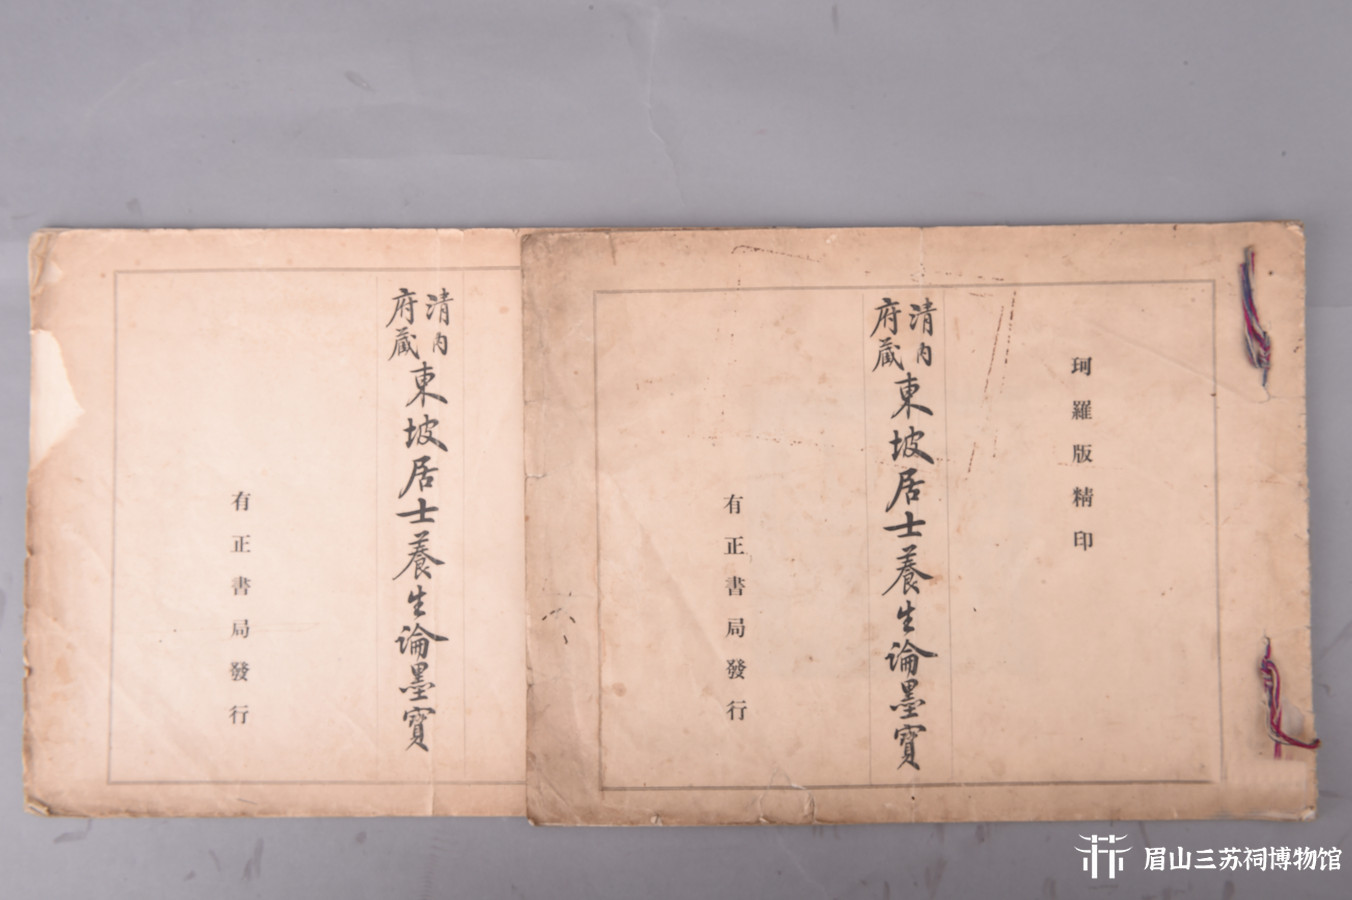 珂羅版精印
清内府藏東坡居士養生論墨寶
有正書局發行
清内府藏東坡居士養生論墨寶
有正書局發行
眉山三苏祠博物馆